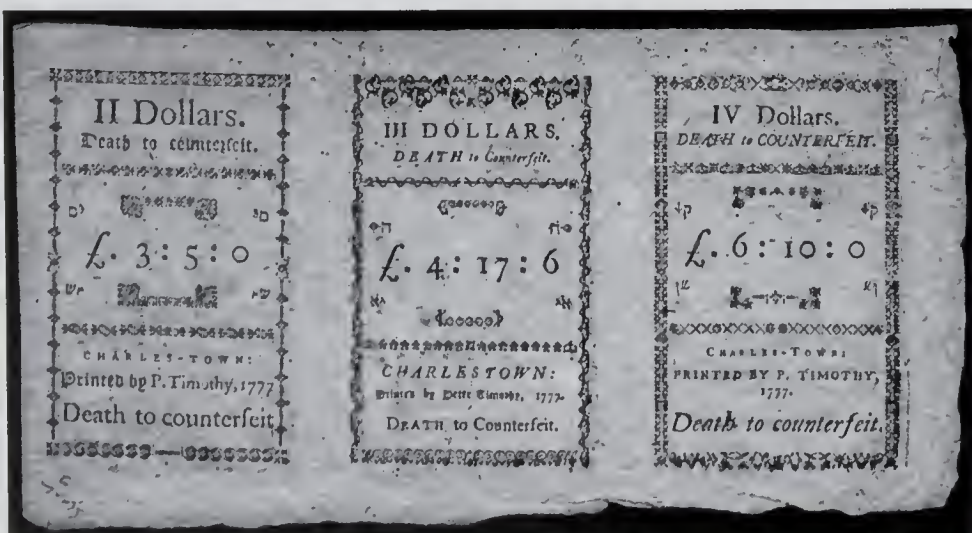 II Dollars.
Death to counterfeit.
£. 3 : 5 : 0
CHARLES-TOWN:
Printed by P. Timothy, 1777
Death to counterfeit
III DOLLARS.
DEATH to Counterfeit.
£. 4 : 17 : 6
CHARLESTOWN:
Printed by Peter Timothy, 1777.
DEATH to Counterfeit.
IV Dollars.
DEATH to COUNTERFEIT.
£. 6 : 10 : 0
CHARLES-TOWN:
PRINTED BY P. TIMOTHY,
1777.
Death to counterfeit.